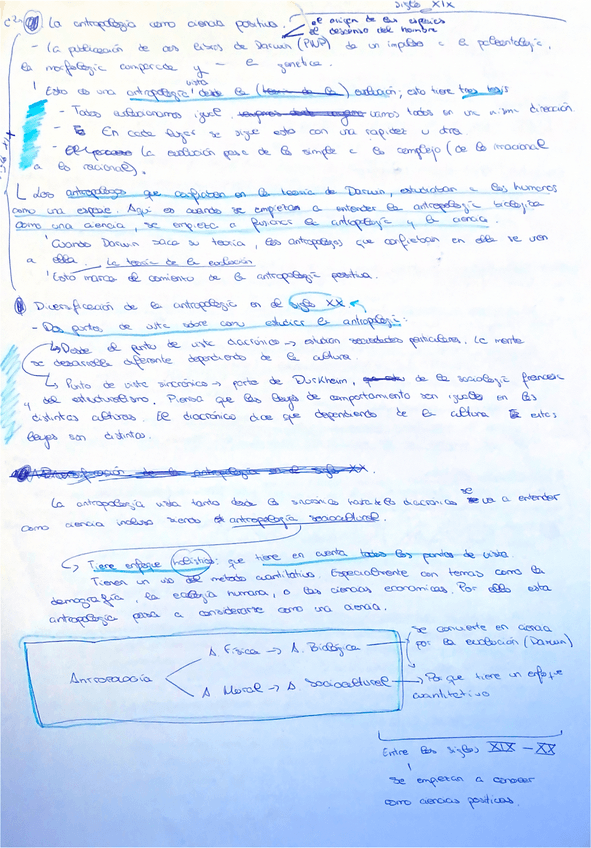 siglo XIX
La antropología como ciencia positiva.
el origen de las especies
el descenso del hombre
- La publicación de los libros de Darwin de un impulso a la paleontología,
la morfología comparada y la genética.
Esto es una antropología vista desde la evolución; esto tiene tres tesis
- Todos evolucionamos igual, vamos todos en una misma dirección
- En cada lugar se sigue esto con una rapidez u otra.
- La evolución pasa de lo simple a lo complejo (de lo irracional
a lo racional).
Los antropólogos que confiaban en la teoría de Darwin, estudiaban a los humanos
como una especie. Aquí es cuando se empieza a entender la antropología biológica
como una ciencia, se empieza a fusionar la antropología y la ciencia.
Cuando Darwin saca su teoría, los antropólogos que confiaban en ella se ven
a ella. La teoría de la evolución
Esto marca el comienzo de la antropología positiva.
Diversificación de la antropología en el siglo XX
- Dos puntos de vista sobre como estudiar la antropología:
Desde el punto de vista diacrónico → estudian sociedades particulares. La mente
se desarrolla diferente dependiendo de la cultura.
Punto de vista sincrónico → parte de Durkheim, de la sociología francesa
y del estructuralismo. Piensa que las leyes de comportamiento son iguales en las
distintas culturas. El diacrónico dice que dependiendo de la cultura estas
leyes son distintas.
Diversificación de la antropología en el siglo XX.
La antropología vista tanto desde lo sincrónico hasta lo diacrónico se va a entender
como ciencia incluso siendo antropología sociocultural.
Tiene enfoque holístico: que tiene en cuenta todos los puntos de vista.
Tienen un uso del metodo cuantitativo. Especialmente con temas como la
demografía, la ecología humana, o las ciencias economicas. Por ello esta
antropología pasa a considerarse como una ciencia.
Antropología
A Física → A. Biológica
A Moral → A Sociocultural
se convierte en ciencia
por la evolución (Darwin)
→ Porque tiene un enfoque
cuantitativo
Entre los siglos XIX - XX
se empiezan a conocer
como ciencias positivas.